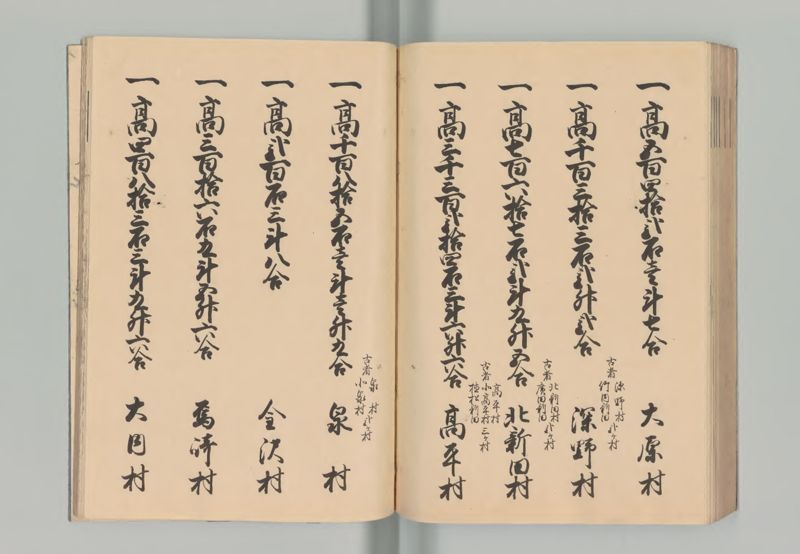 一高五百四拾弐石壱斗七合 大原村
一高千百三拾三石弐升弐合 深野村
古者 深野村 竹岡新田 弐ヶ村
一高七百六拾七石弐斗九升五合 北新田村
古者 北新田村 唐田新田 弐ヶ村
一高三千三百弐拾四石三斗六升六合 高平村
古者 高平村 小高平村 植松新田 三ヶ村
一高千百八拾五石壱斗壱升九合 泉村
古者 泉村 小泉村 弐ヶ村
一高弐百石三斗八合 金沢村
一高三百拾六石九斗五升六合 馬崎村
一高四百八拾三石三斗九升六合 大岡村